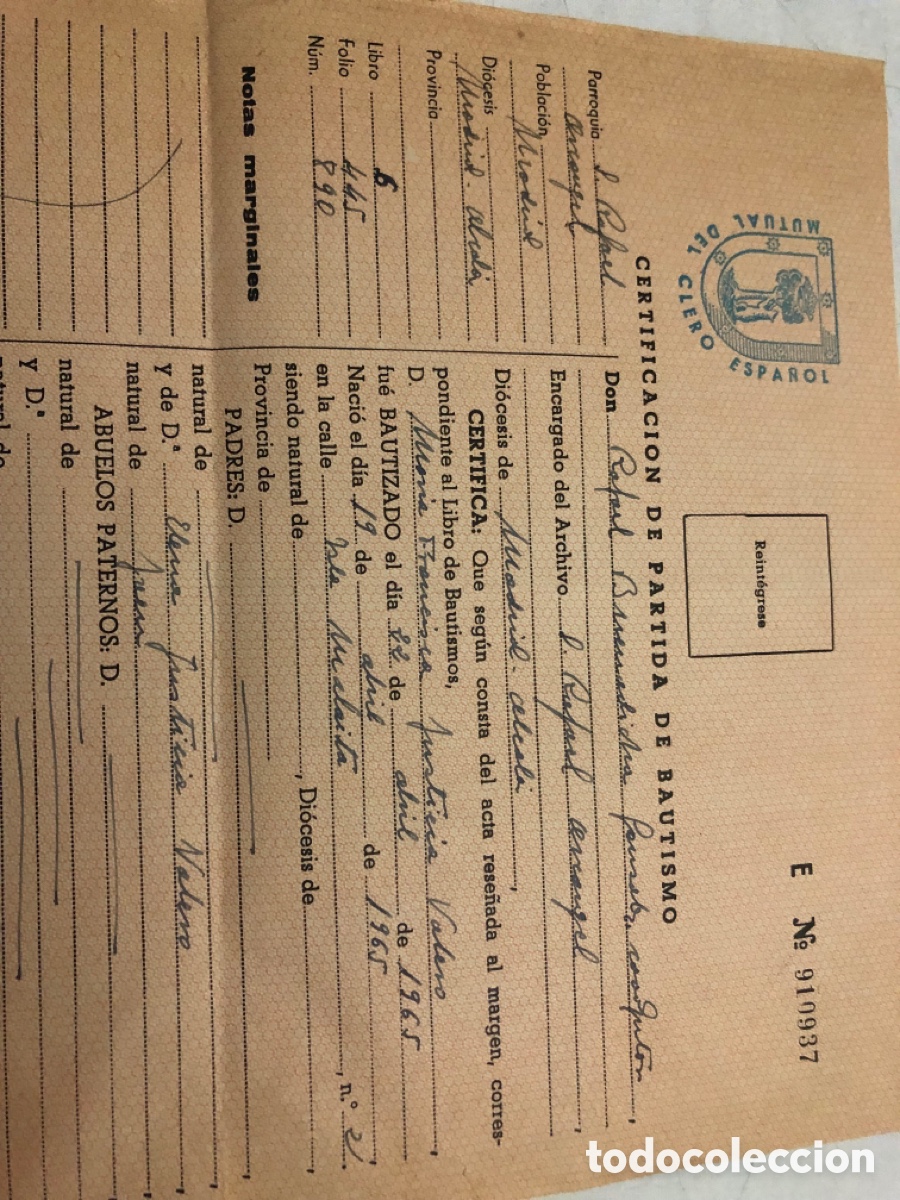 MUTUAL DEL CLERO ESPAÑOL
Reintégrese
E Nº 910937
CERTIFICACION DE PARTIDA DE BAUTISMO
Parroquia S. Rafael
Arcangel
Población Madrid
Diócesis
Madrid-Alcalá
Provincia
Libro 6
Folio 445
Núm. 890
Notas marginales
Don Rafael coadjutor,
Encargado del Archivo S. Rafael Arcangel
Diócesis de Madrid-Alcalá,
CERTIFICA: Que según consta del acta reseñada al margen, corres-
pondiente al Libro de Bautismos,
D. Maria Francisca Justicia Valero
fué BAUTIZADO el día 22 de abril de 1965
Nació el día 19 de abril de 1965
en la calle Isla Malaita, n.º 2
siendo natural de, Diócesis de
Provincia de
PADRES: D.
natural de
y de D.ª Elena Justicia Valero
natural de Jaen
ABUELOS PATERNOS: D.
natural de
y D.ª
natural de
todocoleccion